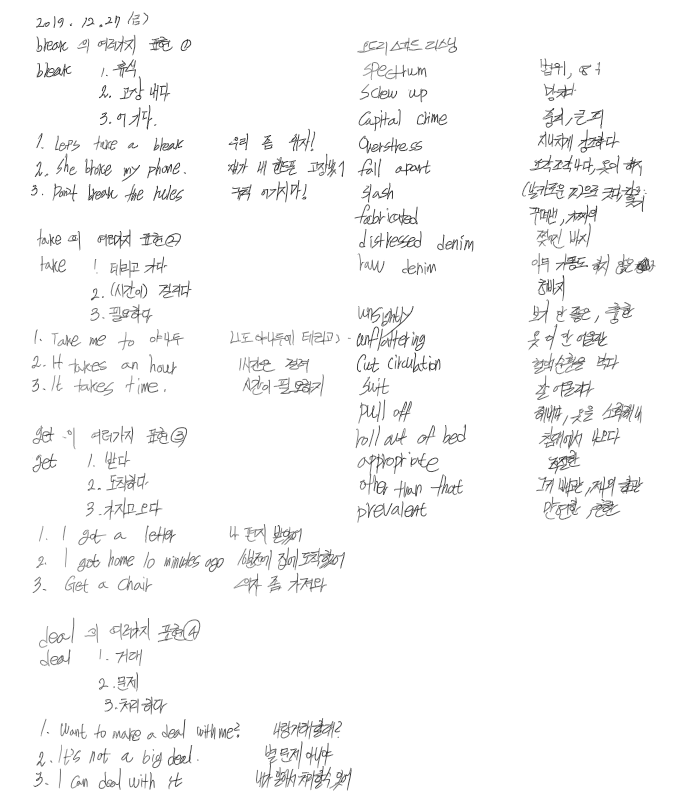 2019. 12. 27 (금)
break 의 여러가지 표현 ①
break 1. 휴식
2. 고장 내다
3. 어기다.
1. Let's take a break 우리 좀 쉬자!
2. She broke my phone. 걔가 내 핸드폰 고장냈어
3. Don't break the rules 규칙 어기지마!
take 의 여러가지 표현 ②
take 1. 데리고 가다
2. (시간이) 걸리다
3. 필요하다
1. Take me to 아나두 나도 아나두에 데리고가
2. It takes an hour 1시간은 걸려
3. It takes time. 시간이 필요하지
get 의 여러가지 표현 ③
get 1. 받다
2. 도착하다
3. 가지고 오다
1. I got a letter 나 편지 받았어
2. I got home 10 minutes ago 10분전에 집에 도착했어
3. Get a chair 의자 좀 가져와
deal 의 여러가지 표현 ④
deal 1. 거래
2. 문제
3. 처리하다
1. Want to make a deal with me? 나랑 거래할래?
2. It's not a big deal. 별 문제 아니야
3. I can deal with it 내가 알아서 처리할 수 있어
오드리 스피드 리스닝
spectrum 범위,
screw up 망치다
capital crime 중죄, 큰 죄
Overstress 지나치게 강조하다
fall apart 조각조각나다, 옷이 해지
slash (날카로운 것)으로 긋다,
fabricated 꾸며낸,
distressed denim 찢어진 바지
raw denim 아무 가공도 하지 않은
청바지
unsightly 보기 안 좋은, 흉한
unflattering 옷이 안 어울린
Cut circulation 혈액순환을 막다
suit 잘 어울리다
pull off 해내다, 옷을 소화해내
roll out of bed 침대에서 나오다
appropriate 적절한
other than that 그거 빼고는, 제외하고
prevalent 만연한, 흔한